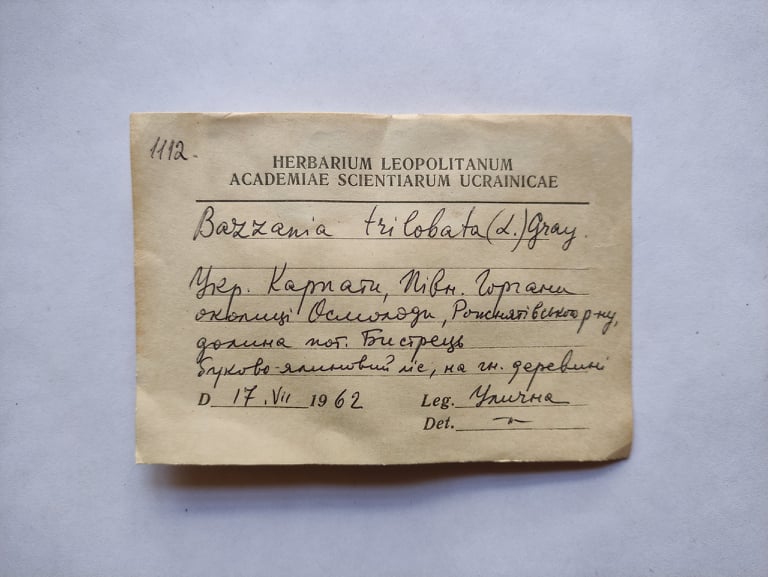 1112.
HERBARIUM LEOPOLITANUM
ACADEMIAE SCIENTIARUM UCRAINICAE
Bazzania trilobata (L.) Gray.
Укр. Карпати, Півн. Горгани
околиці Осмолоди, Рожнятівського р-ну,
долина пот. Бистрець
буково-ялиновий ліс, на гн. деревині
D 17.VII 1962 Leg. Улична
Det. —"—